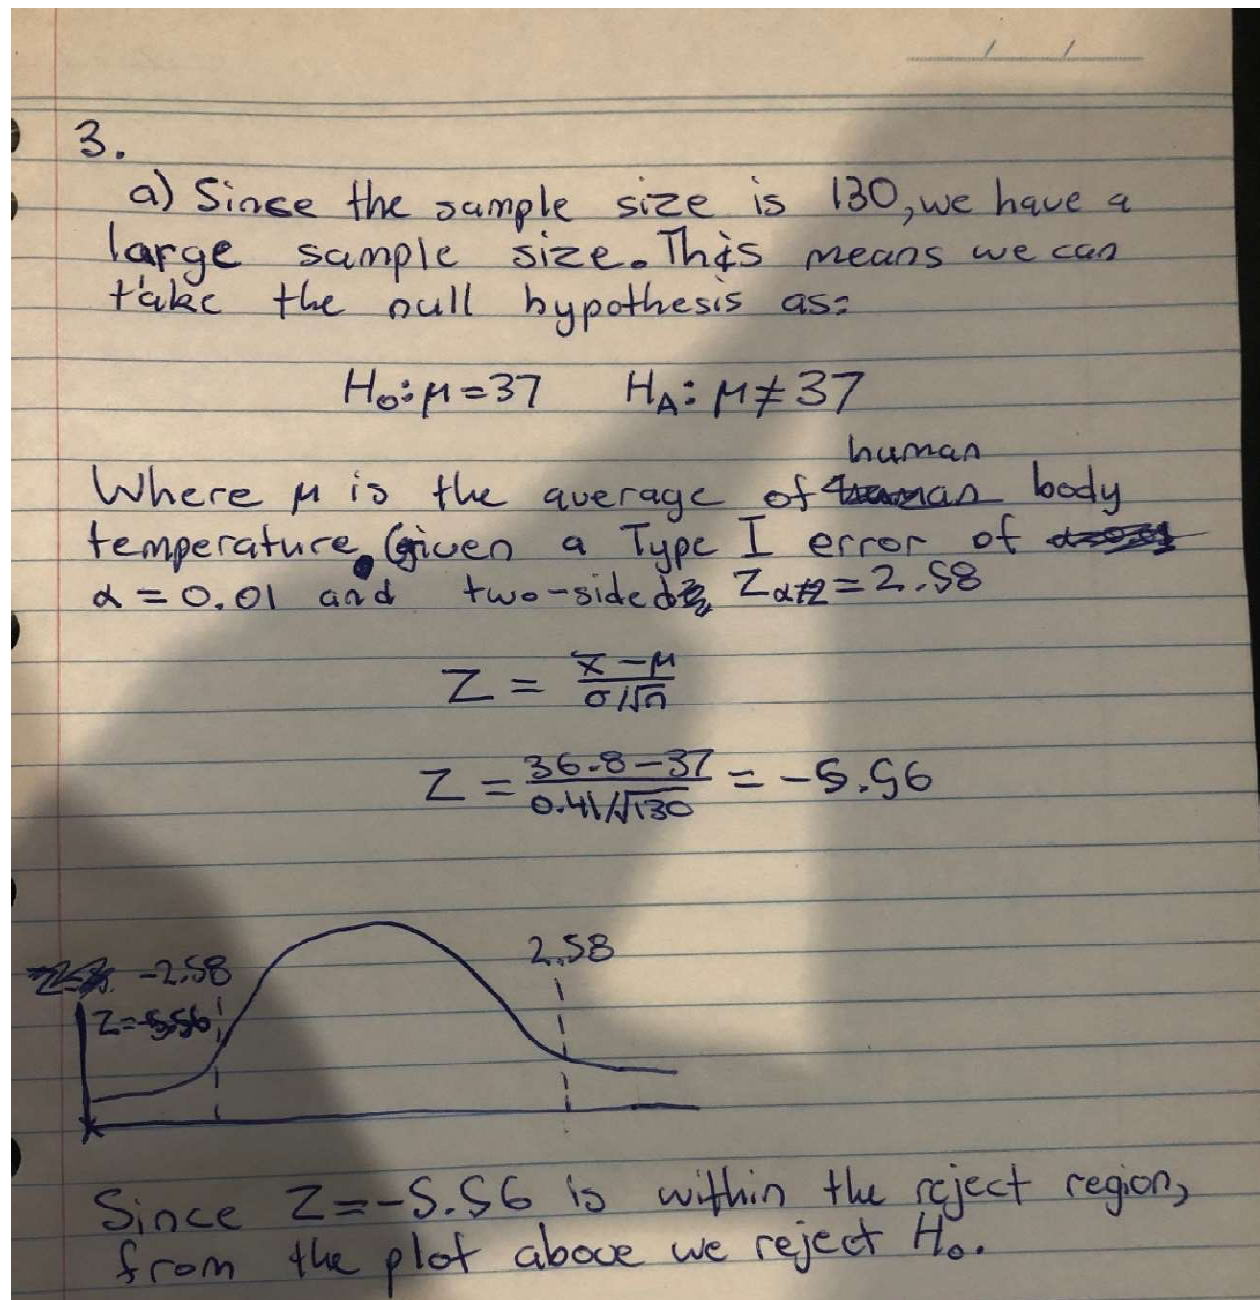 3.
a) Since the sample size is 130, we have a
large sample size. This means we can
take the null hypothesis as:
H₀: μ = 37 H_A: μ ≠ 37
human
Where μ is the average of body
temperature. Given a Type I error of
α = 0.01 and two-sided, Z_α/2 = 2.58
Z = (x̄ - μ) / (σ/√n)
Z = (36.8 - 37) / (0.41/√130) = -5.56
2.58
-2.58
Z = -5.56
Since Z = -5.56 is within the reject region,
from the plot above we reject H₀.